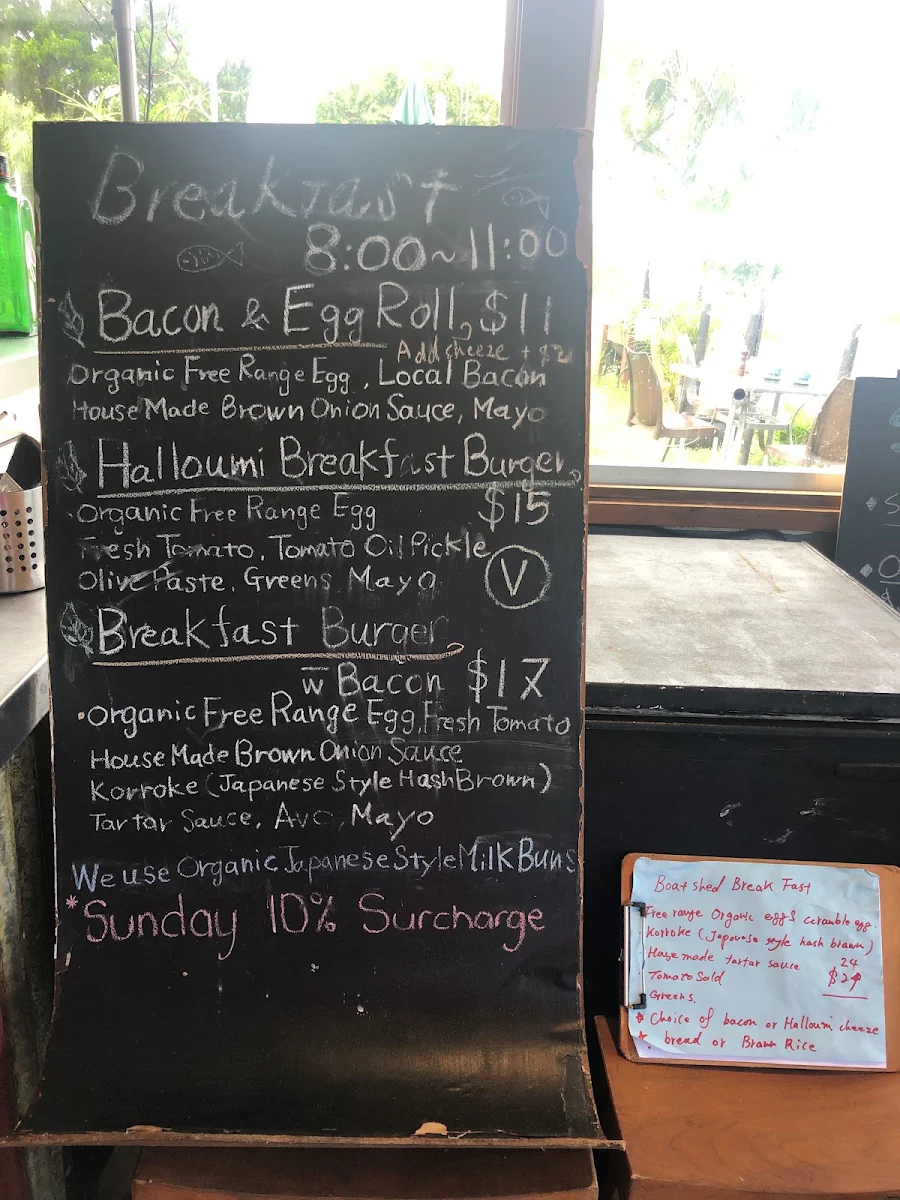 Breakfast
8:00~11:00
Bacon & Egg Roll, $11
Add cheeze + $2
Organic Free Range Egg, Local Bacon
House Made Brown Onion Sauce, Mayo
Halloumi Breakfast Burger,
$15
Organic Free Range Egg
Fresh Tomato, Tomato Oil Pickle
Olive Paste, Greens, Mayo
V
Breakfast Burger
w Bacon $17
Organic Free Range Egg, Fresh Tomato
House Made Brown Onion Sauce
Korroke (Japanese Style Hash Brown)
Tartar Sauce, Avo, Mayo
We use Organic Japanese Style Milk Buns
*Sunday 10% Surcharge
Boat shed Break Fast
Free range Organic eggs
Korroke (Japanese style hash brawn)
made tartar sauce
24
Tomato Sald
Greens.
* Choice of bacon or Halloumi cheeze
* bread or Brawn Rice